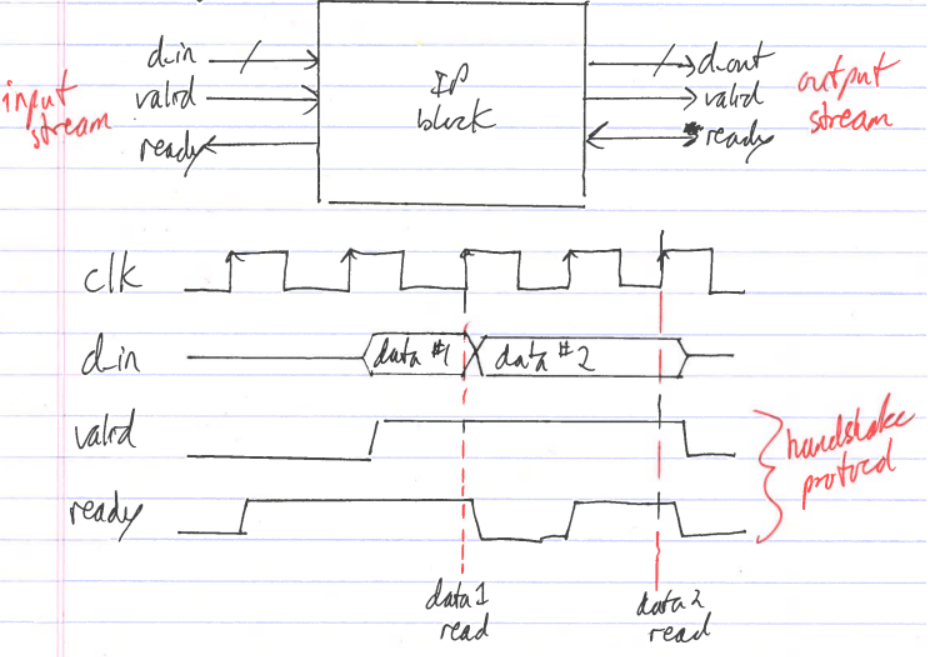 d_in
valid
ready
input
stream
IP
block
d_out
valid
ready
output
stream
clk
d_in
data #1
data #2
valid
ready
handshake
protocol
data1
read
data2
read